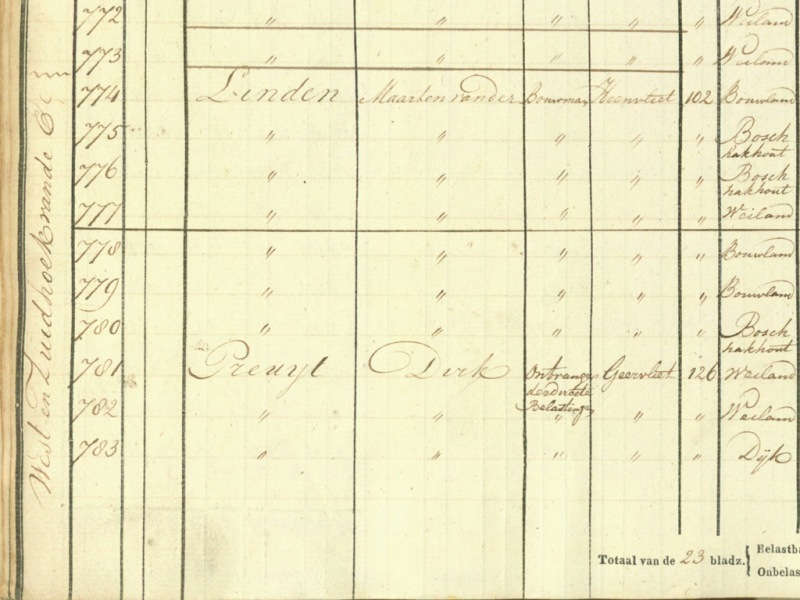 772 〃 〃 〃 〃 〃 Weiland
773 〃 〃 〃 〃 〃 Weiland
774 Linden Maarten van der Bouwman Heenvliet 102 Bouwland
775 〃 〃 〃 〃 〃 Bosch
hakhout
776 〃 〃 〃 〃 〃 Bosch
hakhout
777 〃 〃 〃 〃 〃 Weiland
778 〃 〃 〃 〃 〃 Bouwland
779 〃 〃 〃 〃 〃 Bouwland
780 〃 〃 〃 〃 〃 Bosch
hakhout
781 Preuyt Dirk Ontvanger Geervliet 126 Weiland
der directe
Belastingen
782 〃 〃 〃 〃 〃 Weiland
783 〃 〃 〃 〃 〃 Dijk
West en Zuidhoek rande
Totaal van de 23 bladz.
Belastb
Onbelas